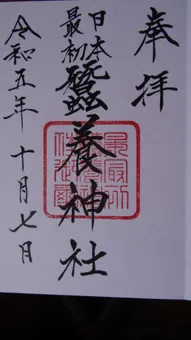 奉拝
日本
最初
蠶養神社
令和五年十月七日